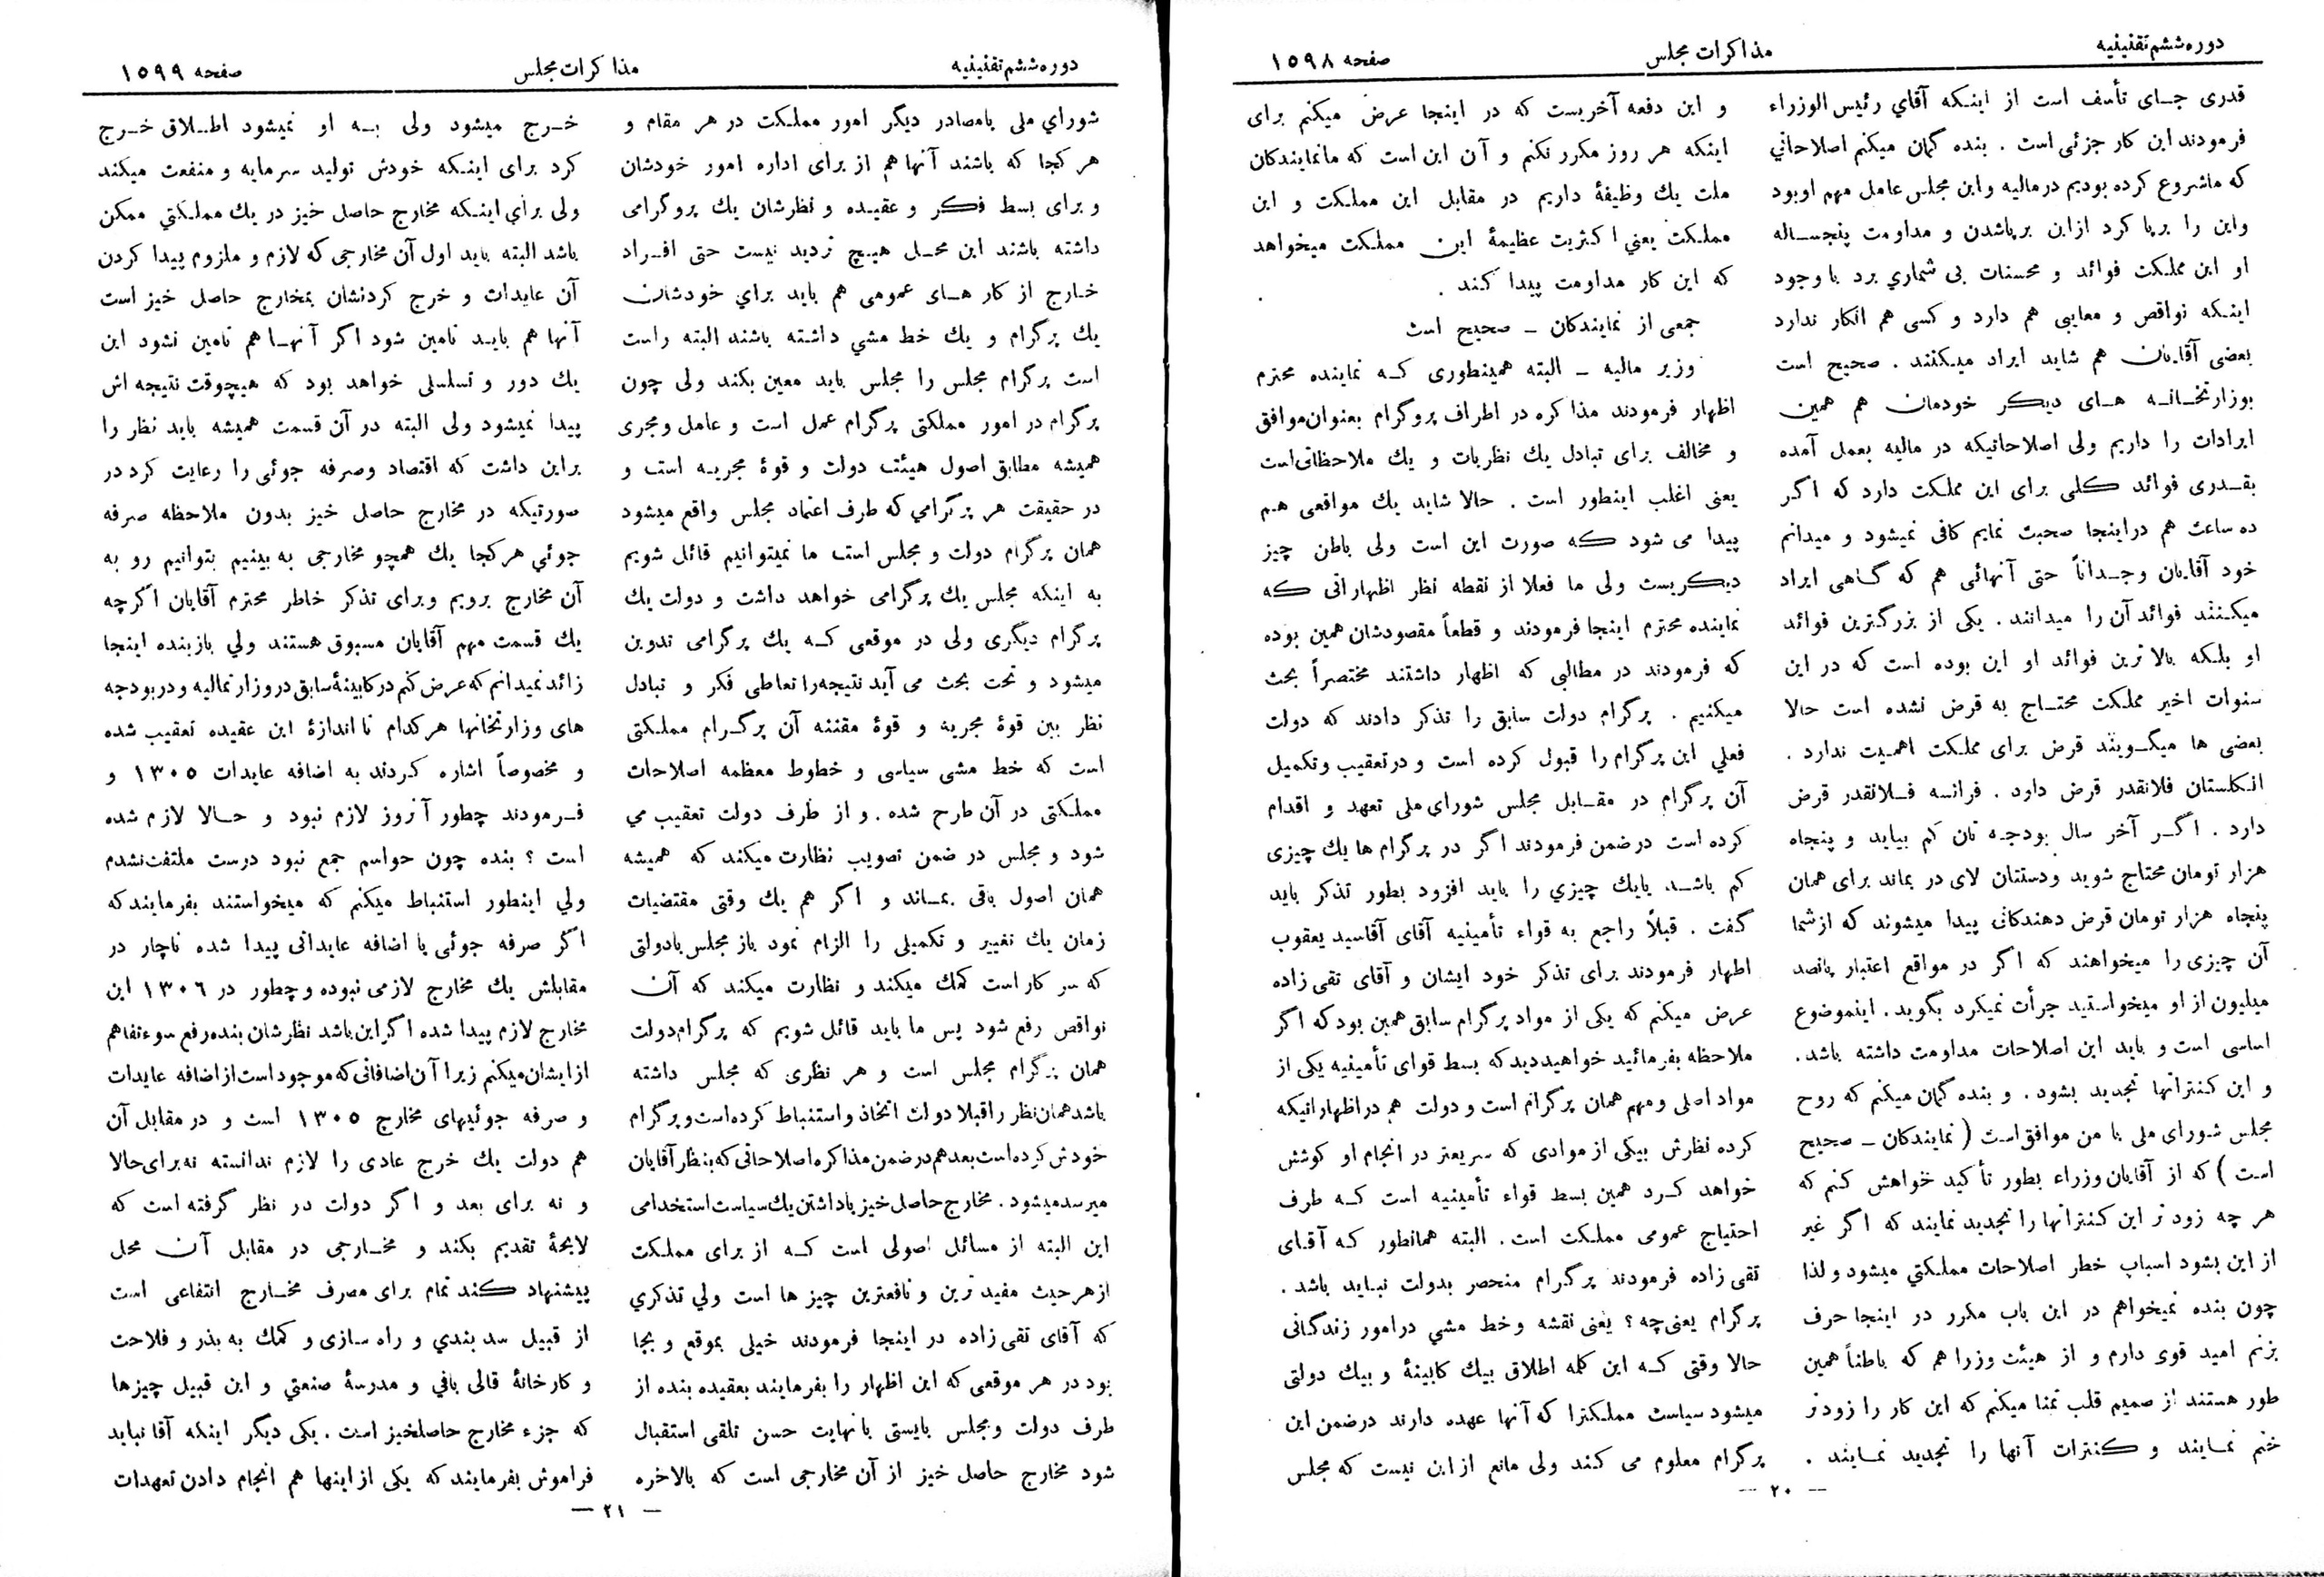 دوره ششم تقنینیه
مذاکرات مجلس
صفحه ۱۵۹۸
قدری جای تأسف است از اینکه آقاي رئیس الوزراء
فرمودند این کار جزئی است . بنده گمان میکنم اصلاحاتي
که ماشروع کرده بودیم در مالیه واین مجلس عامل مهم او بود
واین را برپا کرد ازاین برپاشدن و مداومت پنجساله
او این مملکت فوائد و محسنات بی شماري برد با وجود
اینکه نواقص و معایبی هم دارد و کسی هم انکار ندارد
بعضی آقایان هم شاید ایراد میکنند . صحیح است
بوزارتخانه های دیگر خودمان هم همین
ایرادات را داریم ولی اصلاحاتیکه در مالیه بعمل آمده
بقدری فوائد کلی برای این مملکت دارد که اگر
ده ساعت هم دراینجا صحبت نمایم کافی نمیشود و میدانم
خود آقایان وجداناً حتی آنهائی هم که گاهی ایراد
میکنند فوائد آن را میدانند . یکی از بزرگترین فوائد
او بلکه بالاترین فوائد او این بوده است که در این
سنوات اخیر مملکت محتاج به قرض نشده است حالا
بعضی ها میگویند قرض برای مملکت اهمیت ندارد .
انگلستان فلانقدر قرض دارد . فرانسه فلانقدر قرض
دارد . اگر آخر سال بودجه تان کم بیاید و پنجاه
هزار تومان محتاج شوید ودستتان لای در بماند برای همان
پنجاه هزار تومان قرض دهندکانی پیدا میشوند که ازشما
آن چیزی را میخواهند که اگر در مواقع اعتبار پانصد
میلیون از او میخواستید جرأت نمیکرد بگوید . اینموضوع
اساسی است و باید این اصلاحات مداومت داشته باشد .
و این کنتراتها تجدید بشود . و بنده گمان میکنم که روح
مجلس شورای ملی با من موافق است ( نمایندکان ـ صحیح
است ) که از آقایان وزراء بطور تأکید خواهش کنم که
هر چه زودتر این کنتراتها را تجدید نمایند که اگر غیر
از این بشود اسباب خطر اصلاحات مملکتي میشود ولذا
چون بنده نمیخواهم در این باب مکرر در اینجا حرف
بزنم امید قوی دارم و از هیئت وزرا هم که باطناً همین
طور هستند از صمیم قلب تمنا میکنم که این کار را زودتر
ختم نمایند و کنترات آنها را تجدید نمایند .
و این دفعه آخریست که در اینجا عرض میکنم برای
اینکه هر روز مکرر نکنم و آن این است که مانمایندکان
ملت یك وظیفهٔ داریم در مقابل این مملکت و این
مملکت یعني اکثریت عظیمهٔ این مملکت میخواهد
که این کار مداومت پیدا کند .
جمعی از نمایندکان ـ صحیح است
وزیر مالیه ـ البته همینطوری که نماینده محترم
اظهار فرمودند مذاکره در اطراف پروگرام بعنوان موافق
و مخالف برای تبادل یك نظریات و یك ملاحظاتی است
یعنی اغلب اینطور است . حالا شاید یك مواقعی هم
پیدا می شود که صورت این است ولی باطن چیز
دیگریست ولی ما فعلا از نقطه نظر اظهاراتی که
نماینده محترم اینجا فرمودند و قطعاً مقصودشان همین بوده
که فرمودند در مطالبی که اظهار داشتند مختصراً بحث
میکنیم . پرگرام دولت سابق را تذکر دادند که دولت
فعلي این پرگرام را قبول کرده است و درتعقیب وتکمیل
آن پرگرام در مقابل مجلس شورای ملی تعهد و اقدام
کرده است درضمن فرمودند اگر در پرگرام ها یك چیزی
کم باشد یایك چیزي را باید افزود بطور تذکر باید
گفت . قبلاً راجع به قواء تأمینیه آقای آقاسید یعقوب
اظهار فرمودند برای تذکر خود ایشان و آقای تقی زاده
عرض میکنم که یکی از مواد پرگرام سابق همین بود که اگر
ملاحظه بفرمائید خواهید دید که بسط قوای تأمینیه یکی از
مواد اصلی و مهم همان پرگرام است و دولت هم در اظهاراتیکه
کرده نظرش بیکی از موادی که سریعتر در انجام او کوشش
خواهد کرد همین بسط قواء تأمینیه است که طرف
احتیاج عمومی مملکت است . البته همانطور که آقای
تقی زاده فرمودند پرگرام منحصر بدولت نباید باشد .
پرگرام یعنی چه ؟ یعنی نقشه وخط مشي درامور زندگانی
حالا وقتی که این کلمه اطلاق بیك کابینهٔ و بیك دولتی
میشود سیاست مملکترا که آنها عهده دارند درضمن این
پرگرام معلوم می کند ولی مانع ازاین نیست که مجلس
ـ ۲۰ ـ
دوره ششم تقنینیه
مذاکرات مجلس
صفحه ۱۵۹۹
شورای ملی بامصادر دیگر امور مملکت در هر مقام و
هر کجا که باشند آنها هم از برای اداره امور خودشان
و برای بسط فکر و عقیده و نظرشان یك پروگرامی
داشته باشند این محل هیچ تردید نیست حتی افراد
خارج از کار های عمومی هم باید براي خودشان
یك پرگرام و یك خط مشي داشته باشند البته راست
است پرگرام مجلس را مجلس باید معین بکند ولی چون
پرگرام در امور مملکتی پرگرام عمل است و عامل ومجری
همیشه مطابق اصول هیئت دولت و قوهٔ مجریه است و
در حقیقت هر پرگرامي که طرف اعتماد مجلس واقع میشود
همان پرگرام دولت و مجلس است ما نمیتوانیم قائل شویم
به اینکه مجلس یك پرگرامی خواهد داشت و دولت یك
پرگرام دیگری ولی در موقعی که یك پرگرامی تدوین
میشود و تحت بحث می آید نتیجه را تعاطی فکر و تبادل
نظر بین قوهٔ مجریه و قوهٔ مقننه آن پرگرام مملکتی
است که خط مشی سیاسی و خطوط معظمه اصلاحات
مملکتی در آن طرح شده . و از طرف دولت تعقیب مي
شود و مجلس در ضمن تصویب نظارت میکند که همیشه
همان اصول باقی بماند و اگر هم یك وقتی مقتضیات
زمان یك تغییر و تکمیلی را الزام نمود باز مجلس بادولتی
که سر کار است کمك میکند و نظارت میکند که آن
نواقص رفع شود پس ما باید قائل شویم که پرگرام دولت
همان پرگرام مجلس است و هر نظری که مجلس داشته
باشد همان نظر را قبلا دولت اتخاذ و استنباط کرده است و پرگرام
خودش کرده است بعد هم در ضمن مذاکره اصلاحاتی که بنظر آقایان
میرسد میشود . مخارج حاصل خیز یا داشتن یك سیاست استخدامی
این البته از مسائل اصولی است که از برای مملکت
ازهر حیث مفید ترین و نافعترین چیز ها است ولي تذکري
که آقای تقی زاده در اینجا فرمودند خیلی بموقع و بجا
بود در هر موقعی که این اظهار را بفرمایند بعقیده بنده از
طرف دولت ومجلس بایستی با نهایت حسن تلقی استقبال
شود مخارج حاصل خیز از آن مخارجی است که بالاخره
خرج میشود ولی به او نمیشود اطلاق خرج
کرد برای اینکه خودش تولید سرمایه و منفعت میکند
ولی براي اینکه مخارج حاصل خیز در یك مملکتي ممکن
باشد البته باید اول آن مخارجی که لازم و ملزوم پیدا کردن
آن عایدات و خرج کردنشان بمخارج حاصل خیز است
آنها هم باید تامین شود اگر آنها هم تامین نشود این
یك دور و تسلسلی خواهد بود که هیچوقت نتیجه اش
پیدا نمیشود ولی البته در آن قسمت همیشه باید نظر را
براین داشت که اقتصاد وصرفه جوئی را رعایت کرد در
صورتیکه در مخارج حاصل خیز بدون ملاحظه صرفه
جوئي هر کجا یك همچو مخارجی به بینیم بتوانیم رو به
آن مخارج برویم وبرای تذکر خاطر محترم آقایان اگرچه
یك قسمت مهم آقایان مسبوق هستند ولي باز بنده اینجا
زائد نمیدانم که عرض کنم در کابینهٔ سابق در وزارتمالیه و در بودجه
های وزارتخانها هر کدام تا اندازهٔ این عقیده تعقیب شده
و مخصوصاً اشاره کردند به اضافه عایدات ۱۳۰۵ و
فرمودند چطور آنروز لازم نبود و حالا لازم شده
است ؟ بنده چون حواسم جمع نبود درست ملتفت نشدم
ولي اینطور استنباط میکنم که میخواستند بفرمایند که
اگر صرفه جوئی یا اضافه عایداتی پیدا شده ناچار در
مقابلش یك مخارج لازمی نبوده و چطور در ۱۳۰۶ این
مخارج لازم پیدا شده اگر این باشد نظرشان بنده رفع سوء تفاهم
از ایشان میکنم زیرا آن اضافاتی که موجود است از اضافه عایدات
و صرفه جوئیهای مخارج ۱۳۰۵ است و در مقابل آن
هم دولت یك خرج عادی را لازم ندانسته نه برای حالا
و نه برای بعد و اگر دولت در نظر گرفته است که
لایحهٔ تقدیم بکند و مخارجی در مقابل آن محل
پیشنهاد کند تمام برای مصرف مخارج انتفاعی است
از قبیل سد بندي و راه سازی و کمك به بذر و فلاحت
و کارخانهٔ قالی بافي و مدرسهٔ صنعتي و این قبیل چیزها
که جزء مخارج حاصلخیز است . یکی دیگر اینکه آقا نباید
فراموش بفرمایند که یکی از اینها هم انجام دادن تعهدات
ـ ۲۱ ـ